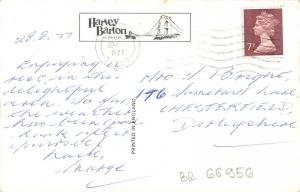 28.9.77
Harvey
Barton
BRISTOL
1977
7P
Enjoying
rest, in this
delightful
area. So far
the weather
has been good.
Look after
yourself
Love,
Marge
PRINTED IN ENGLAND
196
CHESTERFIELD,
Derbyshire
BR 66956